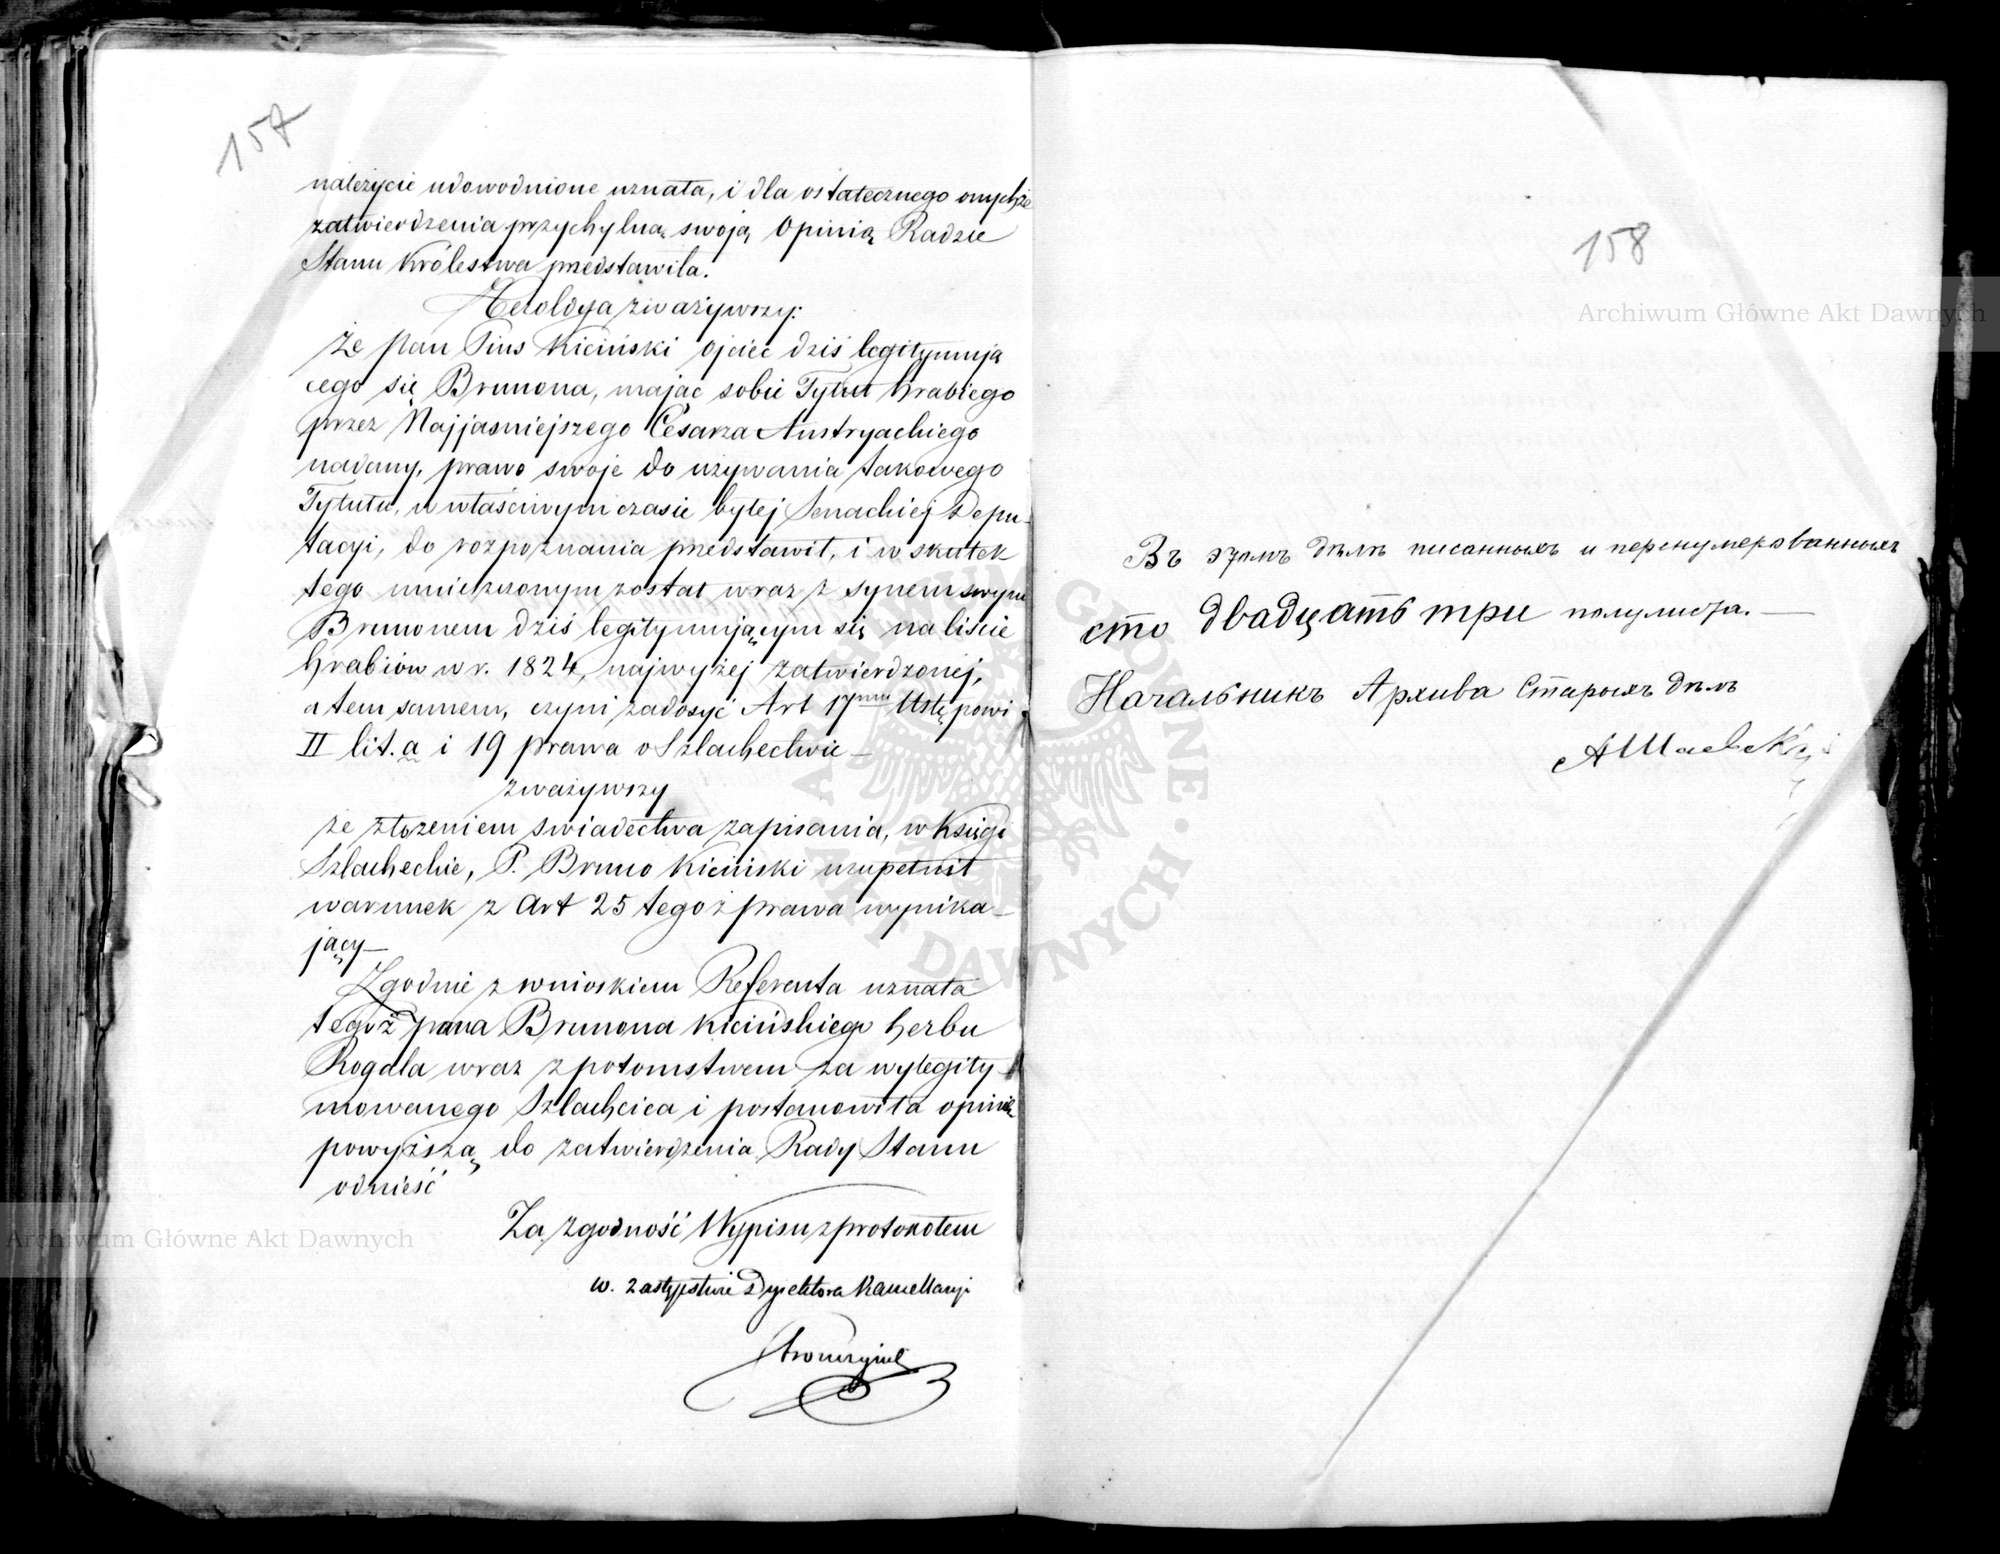 157
należycie udowodnione uznała, i dla ostatecznego onychże
zatwierdzenia przychylną swoją Opinią Radzie
Stanu Królestwa przedstawiła.
Heroldya zważywszy:
że Pan Pius Kiciński ojciec dziś legitymują
cego się Brunona, mając sobie Tytuł hrabiego
przez Najjaśniejszego Cesarza Austryackiego
nadany, prawo swoje do używania takowego
Tytułu, w właściwym czasie byłej Senackiej Depu-
tacyi, do rozpoznania przedstawił, i w skutek
tego umieszczonym został wraz z synem swym
Brunonem dziś legitymującym się na liście
hrabiów w r. 1824, najwyżej zatwierdzonej,
a tem samem, czyni zadosyć Art 17mu Ustępowi
II lit. a i 19 prawa o Szlachectwie —
zważywszy
że złożeniem świadectwa zapisania, w Księgi
Szlacheckie, P. Bruno Kiciński uzupełnił
warunek z Art 25 tegoż prawa wynika-
jący —
Zgodnie z wnioskiem Referenta uznała
tegoż pana Brunona Kicińskiego herbu
Rogala wraz z potomstwem za wylegity-
mowanego Szlachcica i postanowiła opinię
powyższą do zatwierdzenia Rady Stanu
odnieść
Za zgodność Wypisu z protokołem
w. zastępstwie Dyrektora Kancellaryi
158
Въ этомъ дѣлѣ писанныхъ и перенумерованныхъ
сто двадцать три полулиста. —
Начальникъ Архива Старыхъ Дѣлъ
Archiwum Główne Akt Dawnych
Archiwum Główne Akt Dawnych
ARCHIWUM GŁÓWNE AKT DAWNYCH